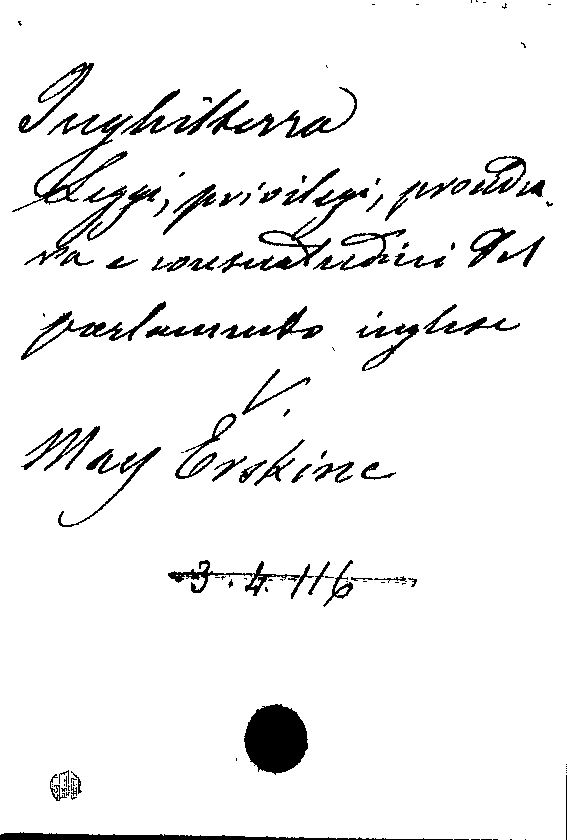 Inghilterra
Leggi, privilegi, procedu-
ra e consuetudini del
parlamento inglese
V.
May Erskine
3.4.116